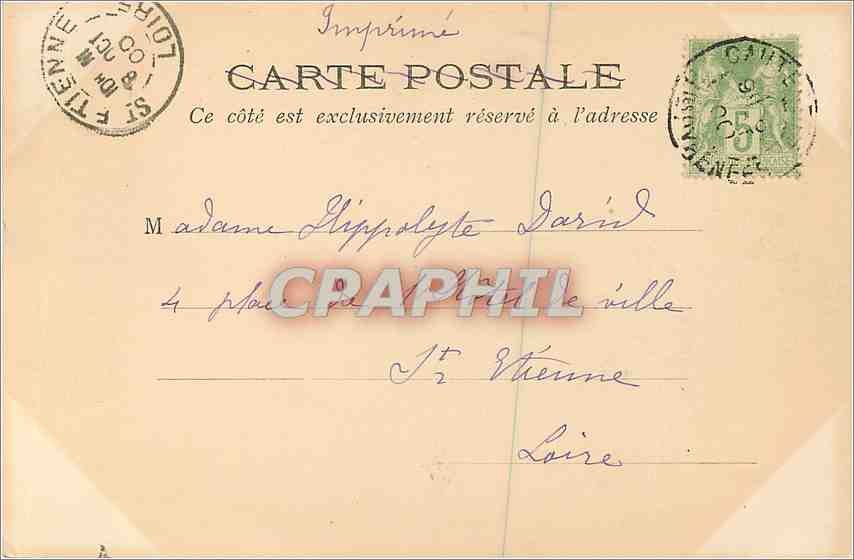 Imprimé
CARTE POSTALE
Ce côté est exclusivement réservé à l'adresse
ST ETIENNE
LOIRE
8 OCT
00
5
Madame Hippolyte David
4 place de l'Hôtel de ville
CPAPHIL
St Etienne
Loire